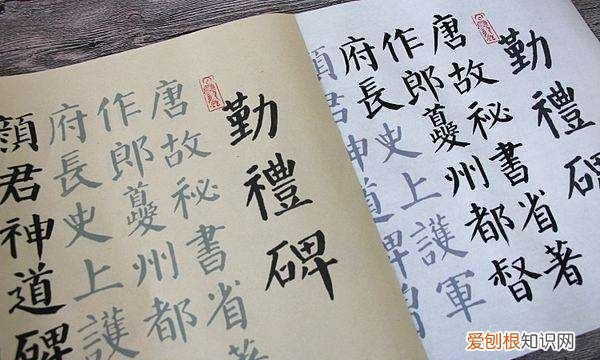 勤禮碑
唐故秘書省著
作郎夔州都督
府長史上護軍
顔君神道碑曾
勤禮碑
唐故秘書省
作郎夔州都
府長史上護
顔君神道碑
爱刨根知识网